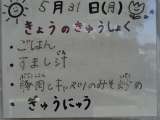 5月31日(月)
きょうのきゅうしょく
・ごはん
・すまし汁
・豚肉とキャベツのみそ炒め
・ぎゅうにゅう